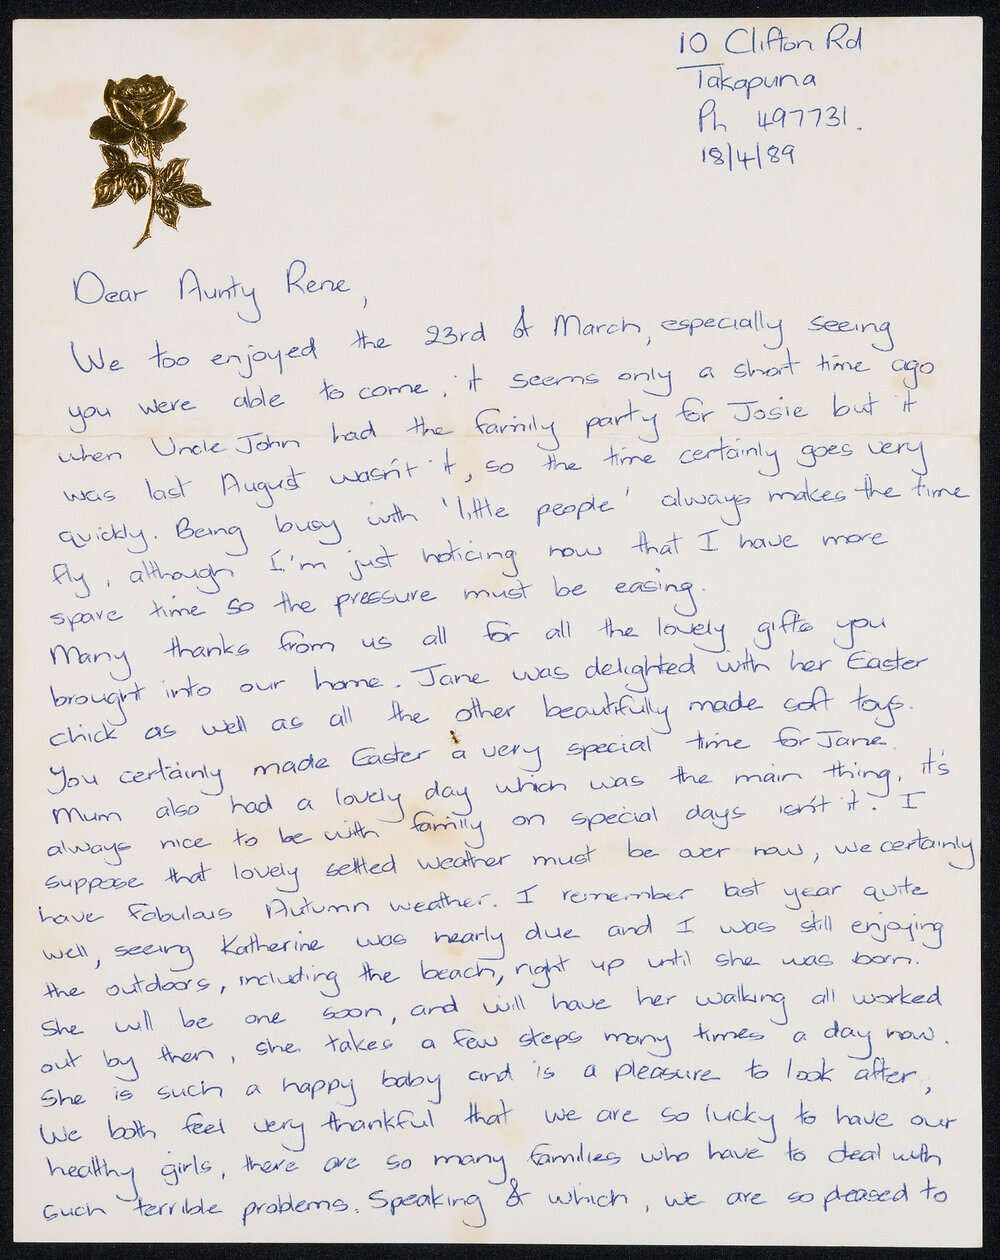 10 Clifton Rd
Takapuna
Ph 497731.
18/4/89
Dear Aunty Rene,
We too enjoyed the 23rd of March, especially seeing
you were able to come, it seems only a short time ago
when Uncle John had the family party for Josie but it
was last August wasn't it, so the time certainly goes very
quickly. Being busy with 'little people' always makes the time
fly, although I'm just noticing now that I have more
spare time so the pressure must be easing.
Many thanks from us all for all the lovely gifts you
brought into our home. Jane was delighted with her Easter
chick as well as all the other beautifully made soft toys.
You certainly made Easter a very special time for Jane.
Mum also had a lovely day which was the main thing, it's
always nice to be with family on special days isn't it. I
suppose that lovely settled weather must be over now, we certainly
have fabulous Autumn weather. I remember last year quite
well, seeing Katherine was nearly due and I was still enjoying
the outdoors, including the beach, right up until she was born.
She will be one soon, and will have her walking all worked
out by then, she takes a few steps many times a day now.
She is such a happy baby and is a pleasure to look after,
We both feel very thankful that we are so lucky to have our
healthy girls, there are so many families who have to deal with
such terrible problems. Speaking of which, we are so pleased to